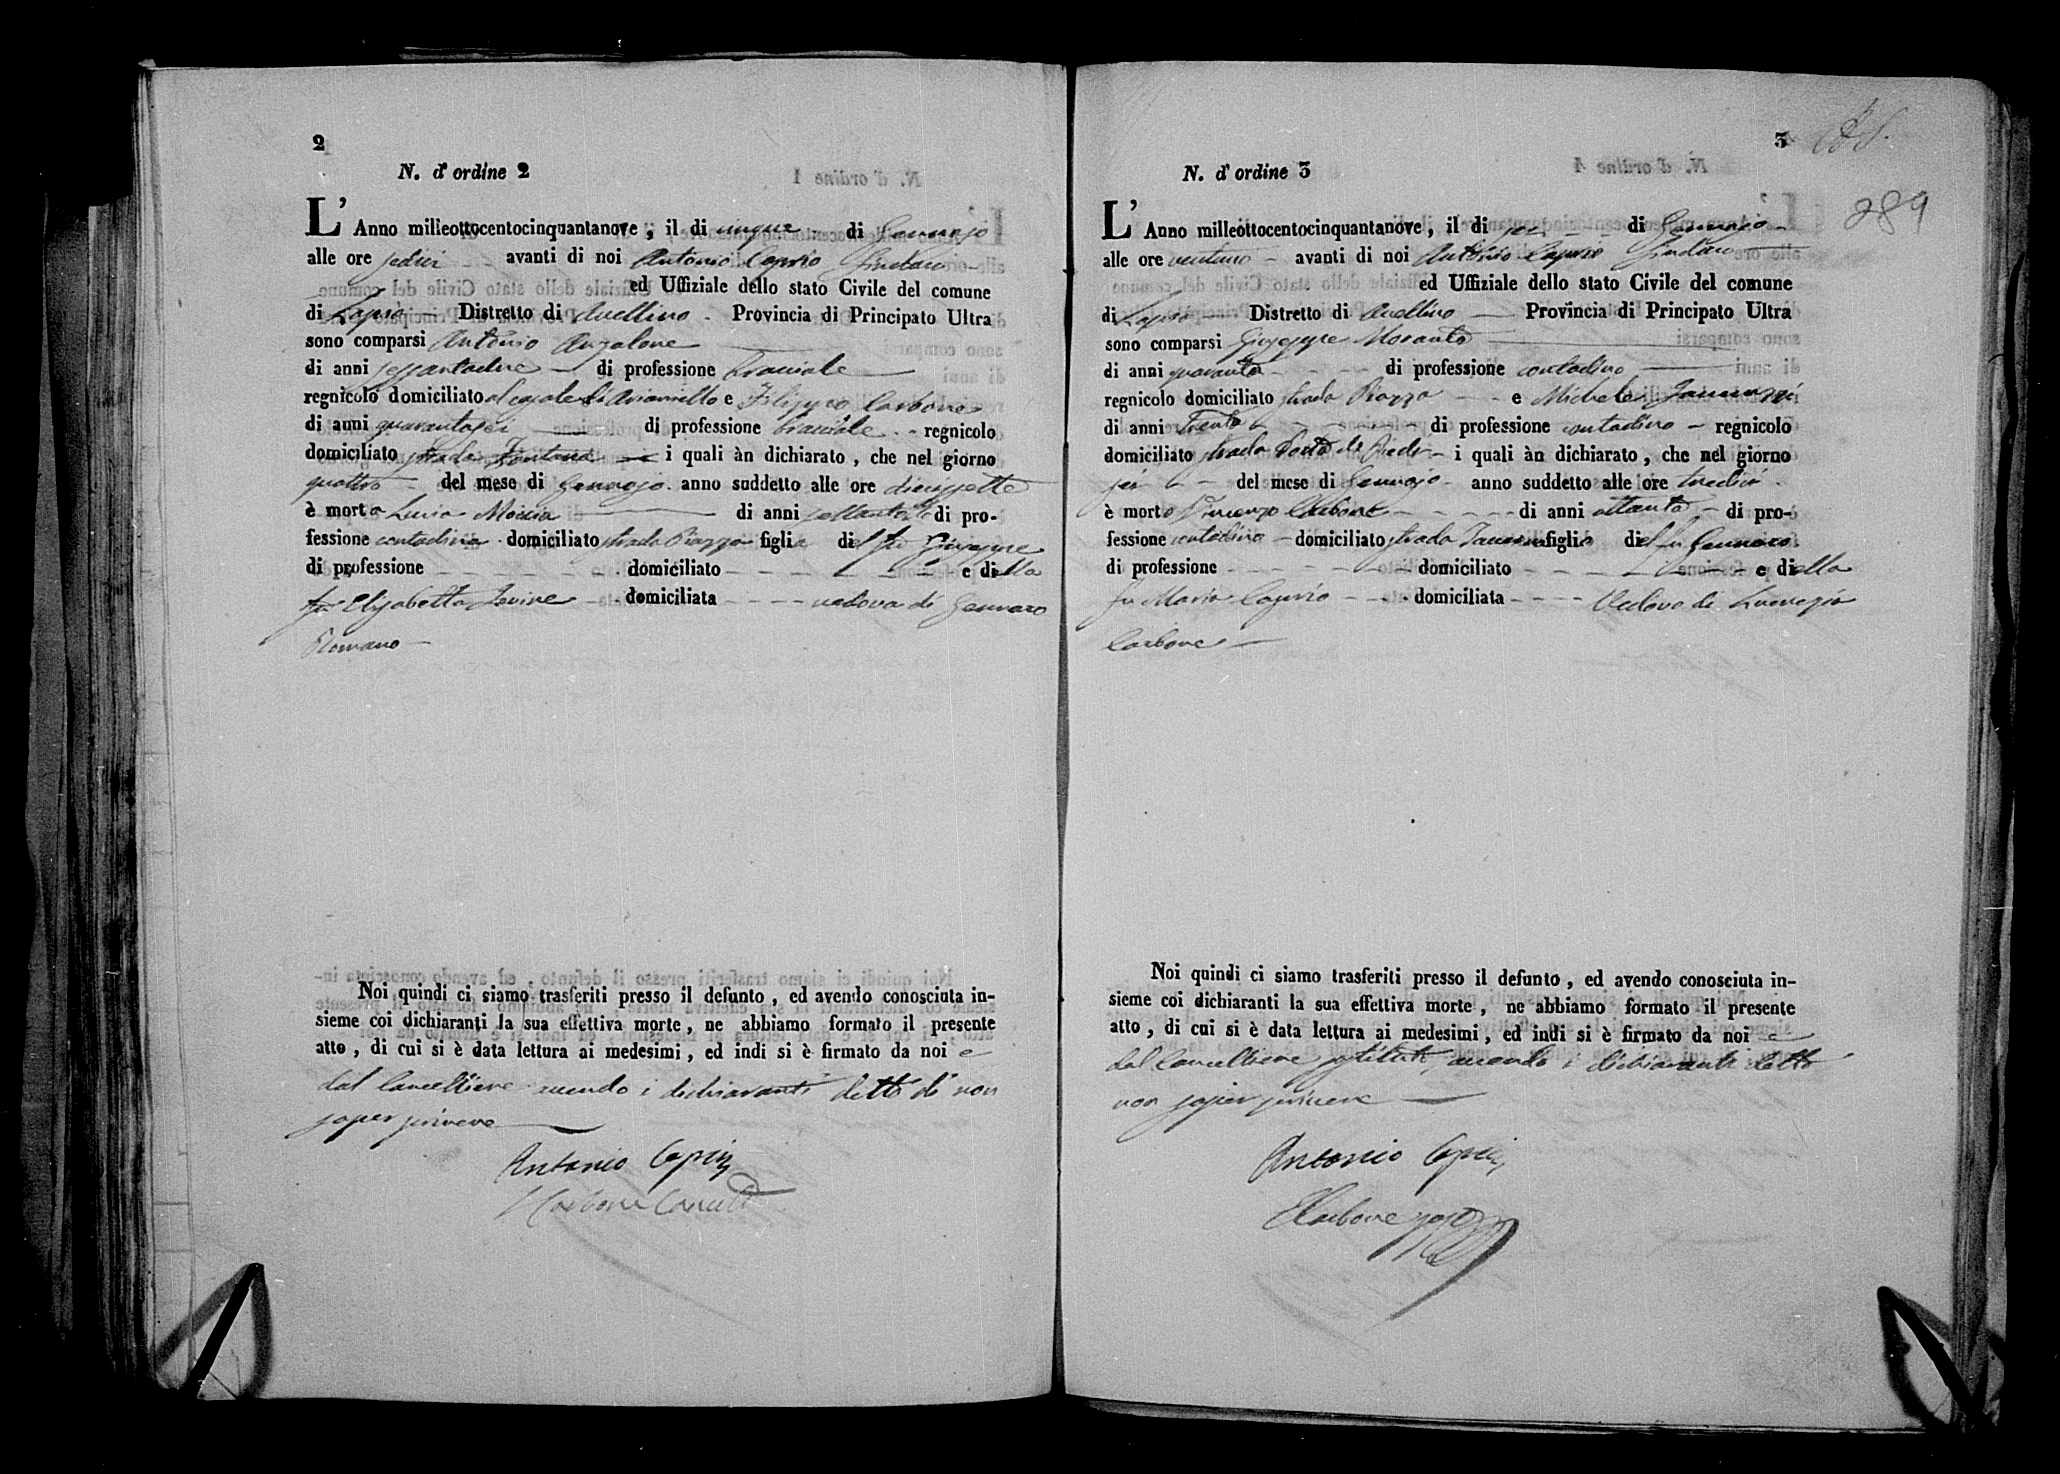 2
N. d' ordine 2
L' Anno milleottocentocinquantanove, il di cinque di Gennajo
alle ore sedici avanti di noi Antonio Caprio Sindaco
ed Uffiziale dello stato Civile del comune
di Lapio Distretto di Avellino Provincia di Principato Ultra
sono comparsi Antonio Anzalone
di anni sessantadue di professione bracciale
regnicolo domiciliato e Filippo Carbone
di anni quarantasei di professione bracciale regnicolo
domiciliato strada Fontana i quali àn dichiarato, che nel giorno
quattro del mese di Gennajo anno suddetto alle ore diecissette
è morta Lucia di anni settanta di pro-
fessione contadina domiciliato strada Piazza figlia del fu Giuseppe
di professione domiciliato e della
fu Elisabetta domiciliata vedova di Gennaro
Romano
Noi quindi ci siamo trasferiti presso il defunto, ed avendo conosciuta in-
sieme coi dichiaranti la sua effettiva morte, ne abbiamo formato il presente
atto, di cui si è data lettura ai medesimi, ed indi si è firmato da noi e
dal Cancelliere avendo i dichiaranti detto di non
saper scrivere
Antonio Caprio
Carbone Canc
3
289
N. d' ordine 3
L' Anno milleottocentocinquantanove, il di sei di Gennaio
alle ore ventuno avanti di noi Antonio Caprio Sindaco
ed Uffiziale dello stato Civile del comune
di Lapio Distretto di Avellino Provincia di Principato Ultra
sono comparsi Giuseppe Morante
di anni quaranta di professione contadino
regnicolo domiciliato strada Piazza e Michele
di anni Trenta di professione contadino regnicolo
domiciliato strada i quali àn dichiarato, che nel giorno
sei del mese di Gennajo anno suddetto alle ore tredici
è morto Vincenzo Carbone di anni ottanta di pro-
fessione contadino domiciliato strada figlio del fu Gennaro
di professione domiciliato e della
fu Maria Caprio domiciliata Vedovo di
Carbone
Noi quindi ci siamo trasferiti presso il defunto, ed avendo conosciuta in-
sieme coi dichiaranti la sua effettiva morte, ne abbiamo formato il presente
atto, di cui si è data lettura ai medesimi, ed indi si è firmato da noi e
dal Cancelliere sostituto, avendo i dichiaranti detto
non saper scrivere
Antonio Caprio
Carbone